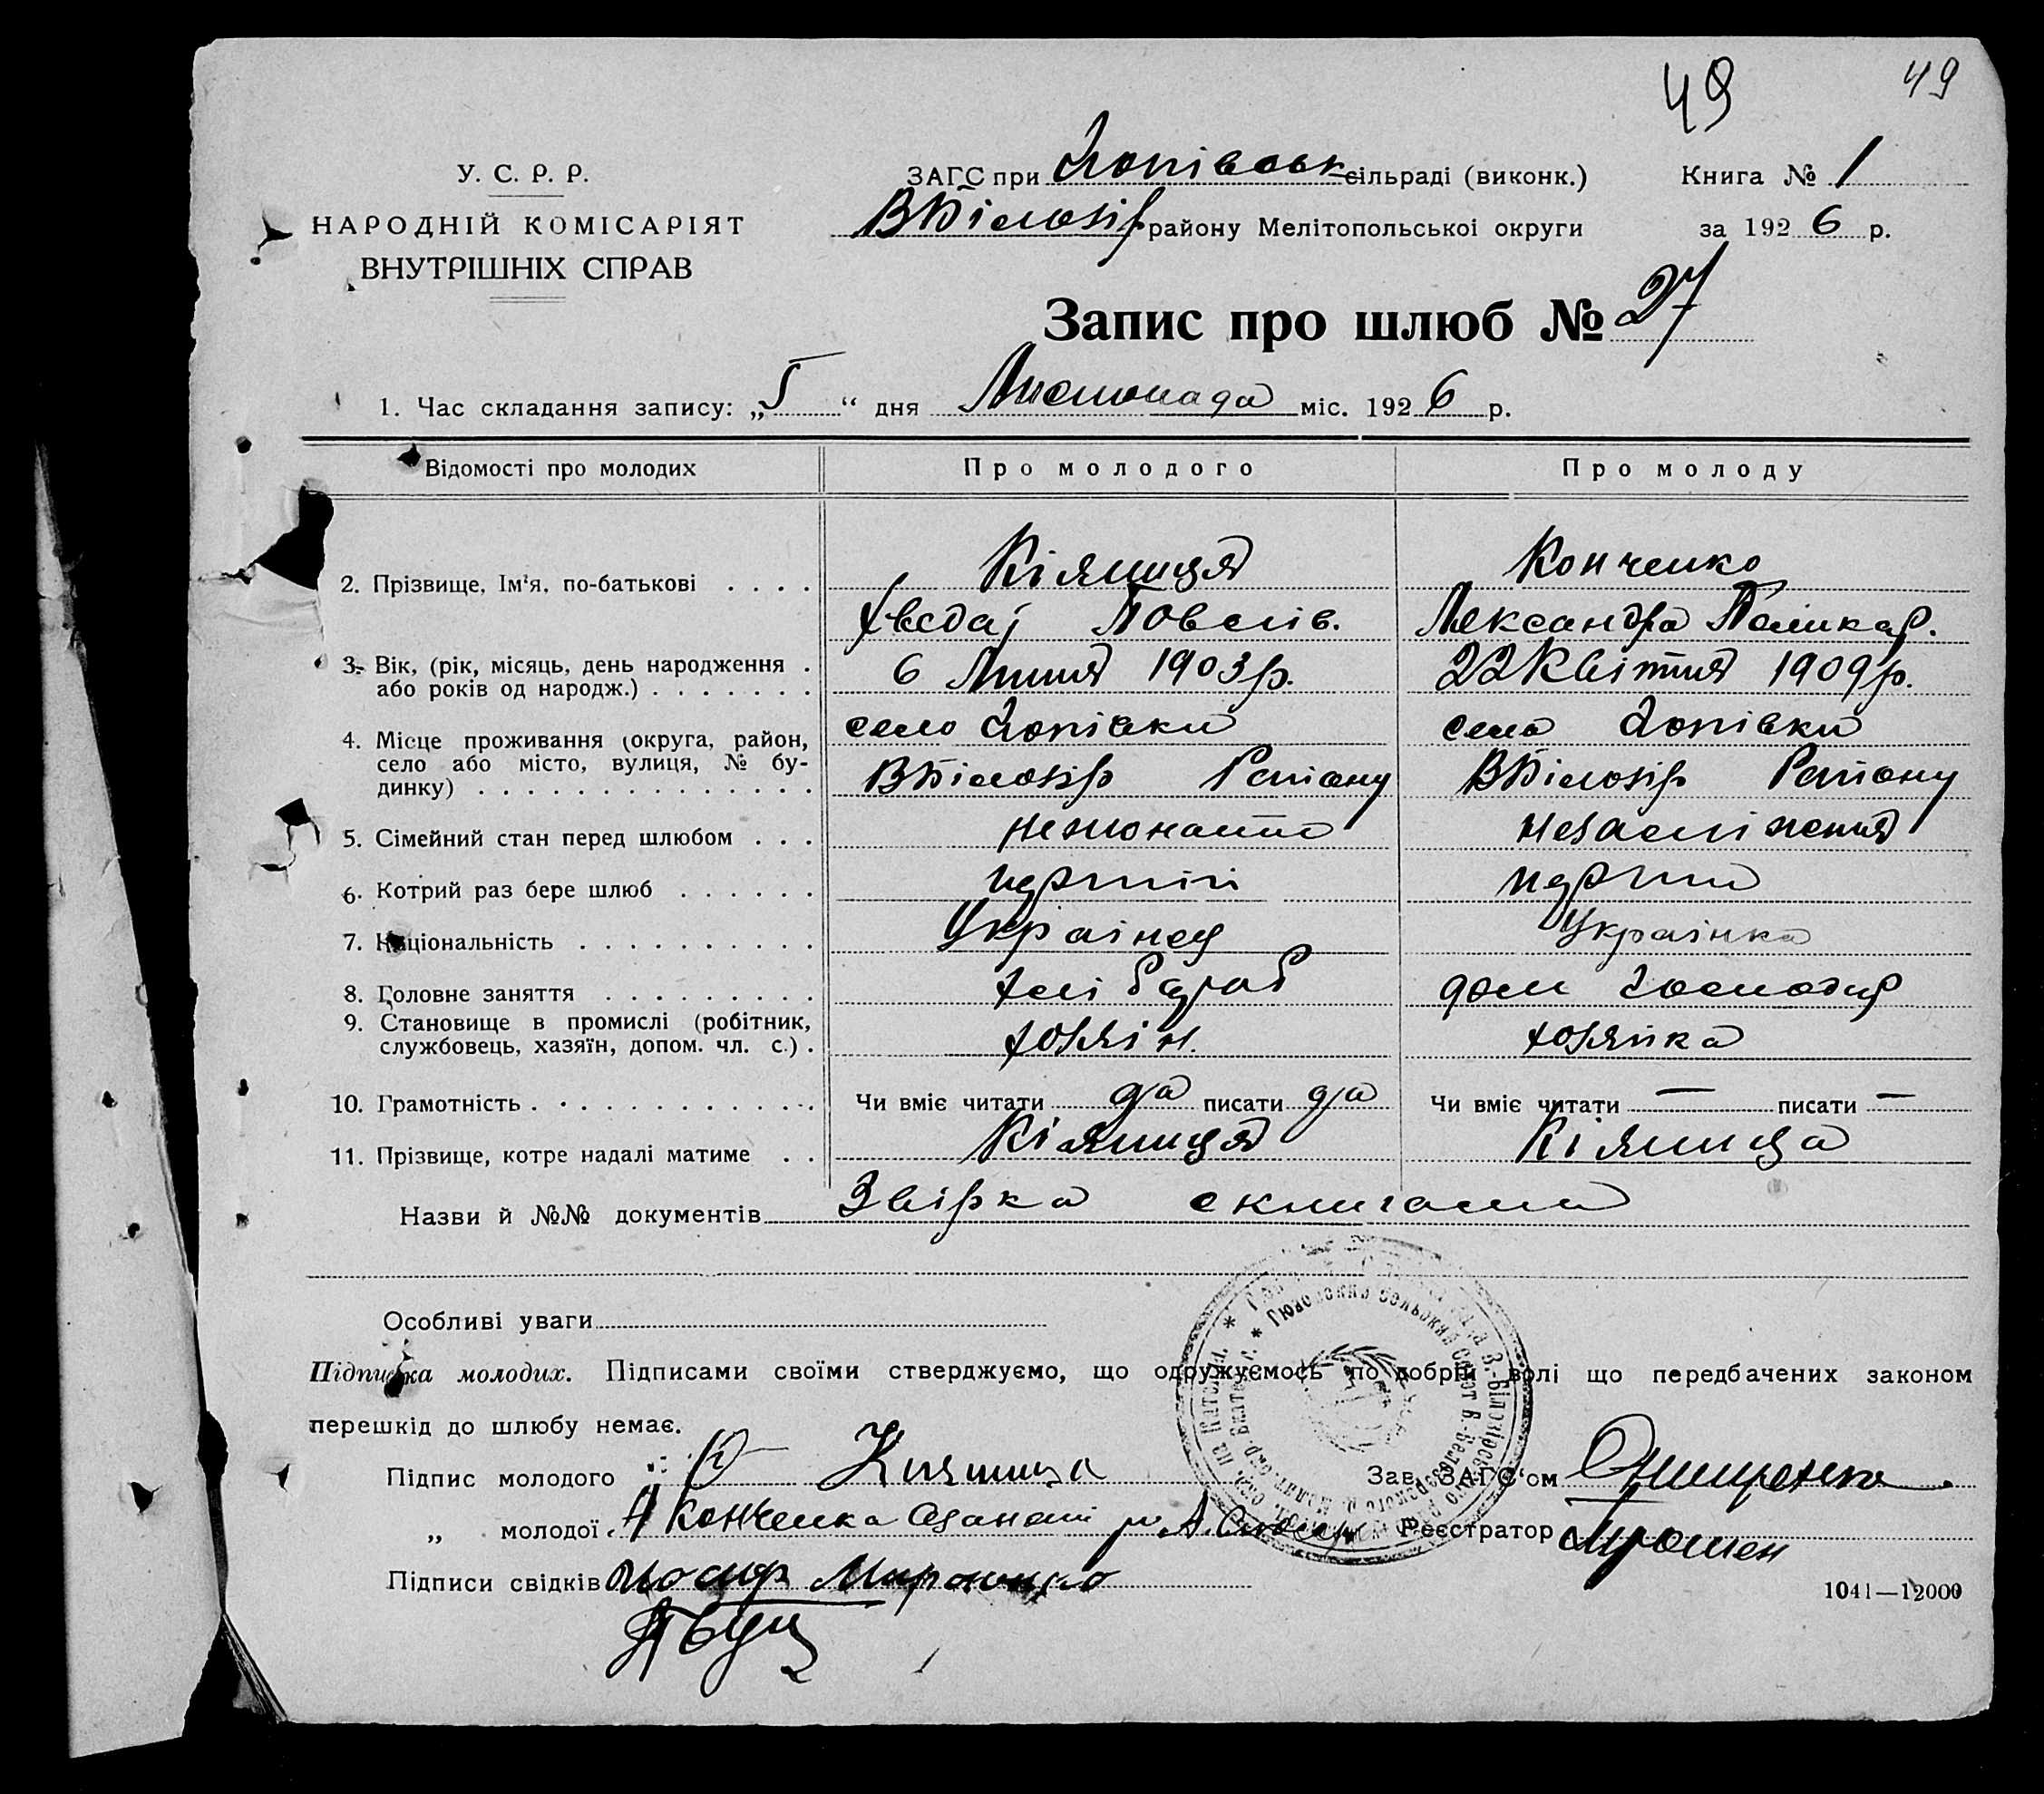 49 49
У. С. Р. Р.
НАРОДНІЙ КОМІСАРІЯТ
ВНУТРІШНІХ СПРАВ
ЗАГС при сільраді (виконк.) Книга № 1
ВБілозір району Мелітопольськоі округи за 1926 р.
Запис про шлюб № 27
1. Час складання запису: „5“ дня Листопада міс. 1926 р.
Відомості про молодих Про молодого Про молоду
2. Прізвище, Ім'я, по-батькові Кіяниця Конченко
Павлів. Лександра Полікар.
3. Вік, (рік, місяць, день народження або років од народж.) 6 Липня 1903р. 22 Квітня 1909р.
4. Місце проживання (округа, район, село або місто, вулиця, № будинку) село село
ВБілозір Району ВБілозір Району
5. Сімейний стан перед шлюбом нежонатий
6. Котрий раз бере шлюб перший перший
7. Національність Украінец Украінка
8. Головне заняття хлібороб дом господар
9. Становище в промислі (робітник, службовець, хазяїн, допом. чл. с.) хозяін. хозяйка
10. Грамотність Чи вміє читати да писати да Чи вміє читати — писати —
11. Прізвище, котре надалі матиме Кіяниця Кіяница
Назви й №№ документів Звірка скнигами
Особливі уваги
Підписка молодих. Підписами своїми стверджуємо, що одружуємось по добрій волі що передбачених законом
перешкід до шлюбу немає.
Підпис молодого Кияница Зав. ЗАГС'ом
„ молодої А Конченка Реєстратор
Підписи свідків
1041—12000